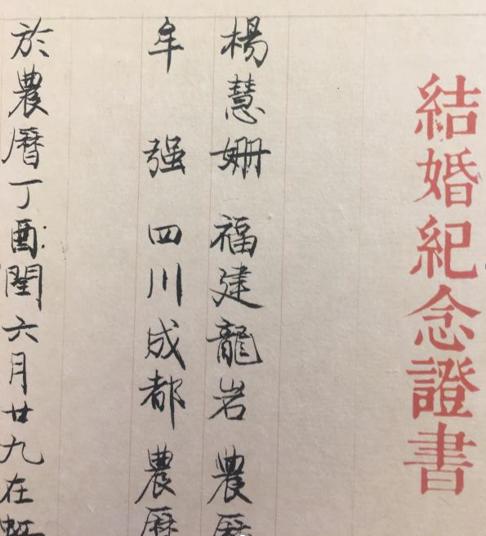 結婚紀念證書
楊慧姍 福建龍岩 農曆
牟 强 四川成都 農曆
於農曆丁酉閏六月廿九在